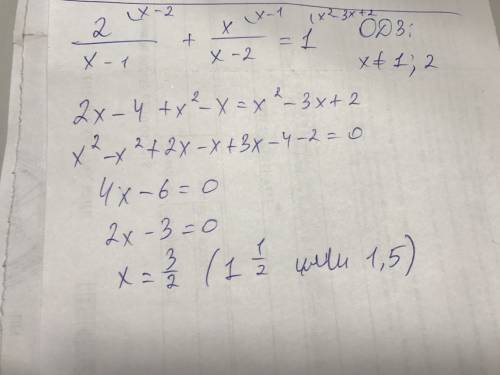 2 \x-2 / x-1 + x \x-1 / x-2 = 1 \x²-3x+2   ОДЗ:
x ≠ 1; 2
2x-4 + x²-x = x²-3x+2
x²-x²+2x-x+3x-4-2=0
4x-6=0
2x-3=0
x = 3/2 (1 1/2 или 1,5)